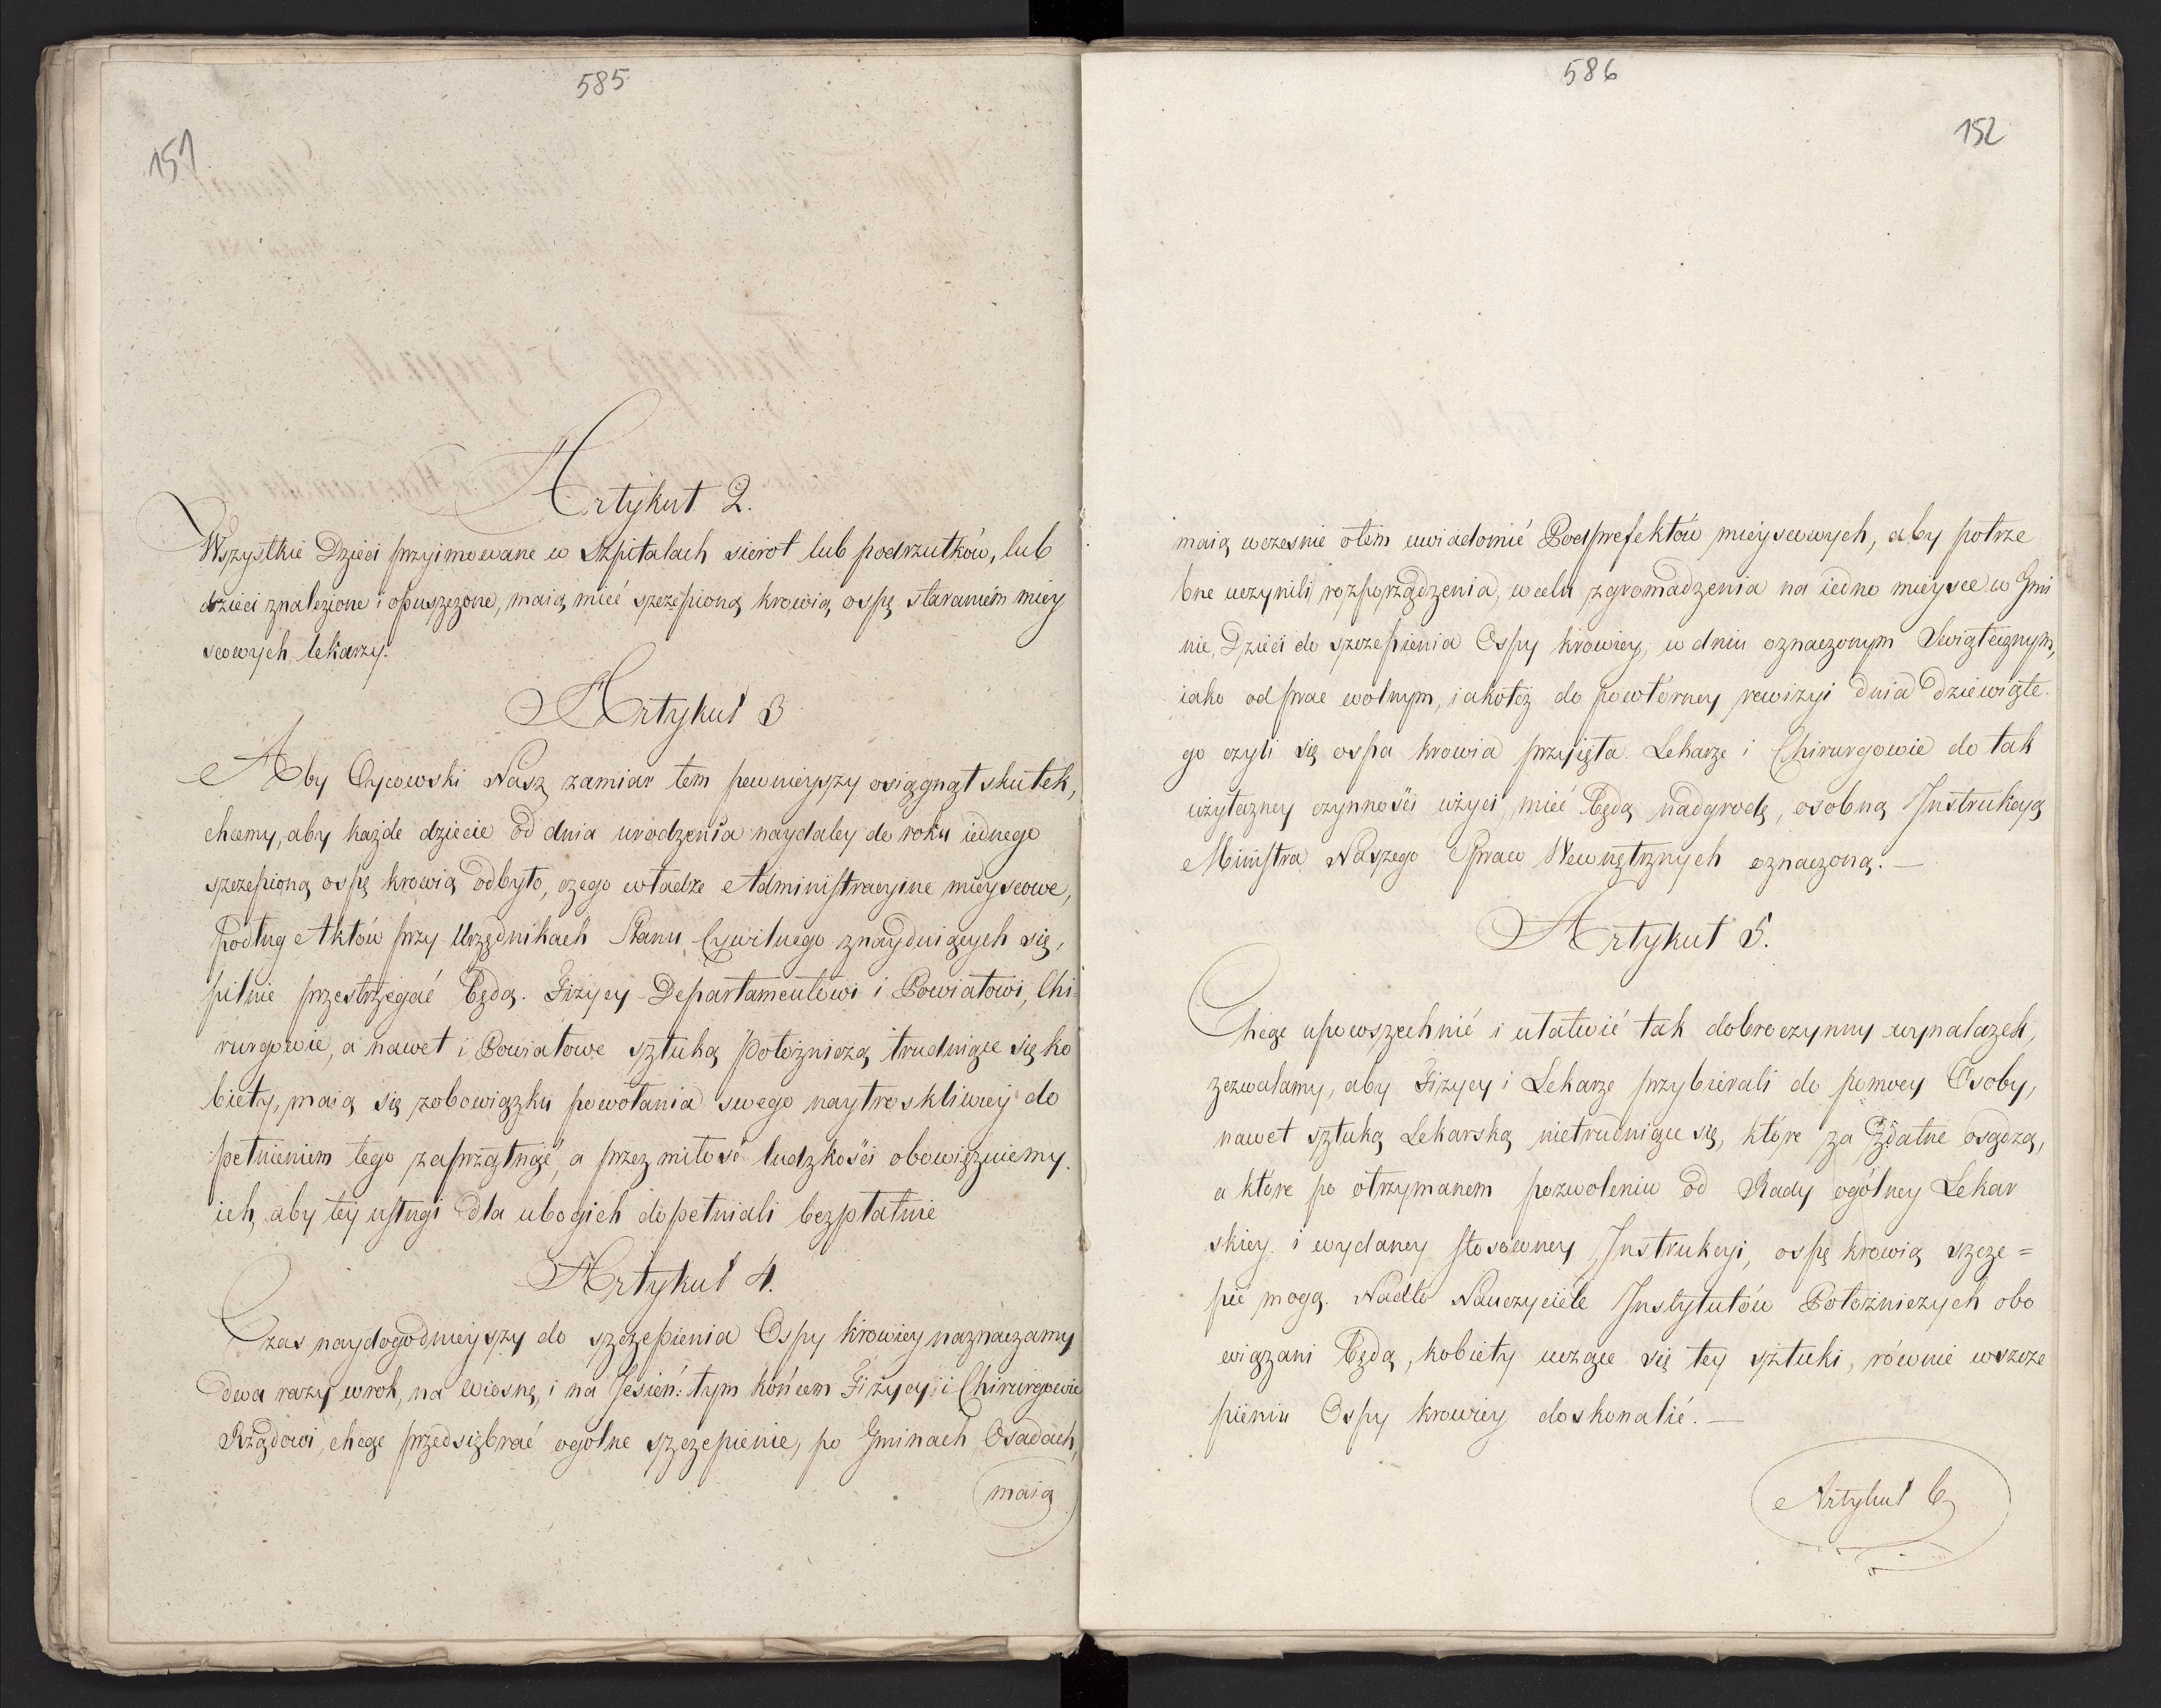 585
151
Artykuł 2.
Wszystkie Dzieci przyimowane w Szpitalach sierot lub podrzutków, lub
dzieci znalezione i opuszczone, maią mieć szczepioną krowią ospę staraniem miey
scowych lekarzy.
Artykuł 3
Aby Oycowski Nasz zamiar tem pewnieyszy osiągnął skutek,
chcemy, aby każde dziecie od dnia urodzenia naydaley do roku iednego
szczepioną ospę krowią odbyło, czego władze Administracyine mieyscowe,
podług Aktów przy Urzędnikach Stanu Cywilnego znayduiących się,
pilnie przestrzegać będą. Fizycy Departamentowi i Powiatowi, Chi
rurgowie, a nawet i Powiatowe sztuką Położniczą trudniące się ko
biety, maią się zobowiązku powołania swego naytroskliwiey do
pełnieniem tego zaprzątnąć, a przez miłość ludzkości obowiązuiemy
ich, aby tey usługi dla ubogich dopełniali bezpłatnie
Artykuł 4.
Czas naydogodnieyszy do szczepienia Ospy krowiey naznaczamy
dwa razy wrok, na wiosnę, i na Jesień: tym końcem Fizycy i Chirurgowie
Rządowi, chcąc przedsiębrać ogólne szczepienie, po Gminach, Osadach,
maią
586
152
maią wcześnie otem uwiadomić Podprefektów mieyscowych, aby potrze
bne uczynili rozporządzenia, wcelu zgromadzenia na iedno mieysce w Gmi
nie, Dzieci do szczepienia Ospy krowiey, w dniu oznaczonym Swiątecznym,
iako od prac wolnym, iakoteż do powtórney rewizyi dnia dziewiąte
go czyli się ospa krowia przyięta. Lekarze i Chirurgowie do tak
użyteczney czynności użyci, mieć będą nadgrodę, osobną Instrukcyą
Ministra Naszego Spraw Wewnętrznych oznaczoną. —
Artykuł 5.
Chcąc upowszechnić i ułatwić tak dobroczynny wynalazek,
zezwalamy, aby Fizycy i Lekarze przybierali do pomocy Osoby,
nawet sztuką Lekarską nietrudniące się, które za zdatne osądzą,
a które po otrzymanem pozwoleniu od Rady ogólney Lekar
skiey i wydaney stosowney Instrukcyi, ospę krowią szcze=
pić mogą. Nadto Nauczyciele Instytutów Położniczych obo
wiązani będą, kobiety uczące się tey sztuki, równie wszcze
pieniu Ospy krowiey doskonalić. —
Artykuł 6